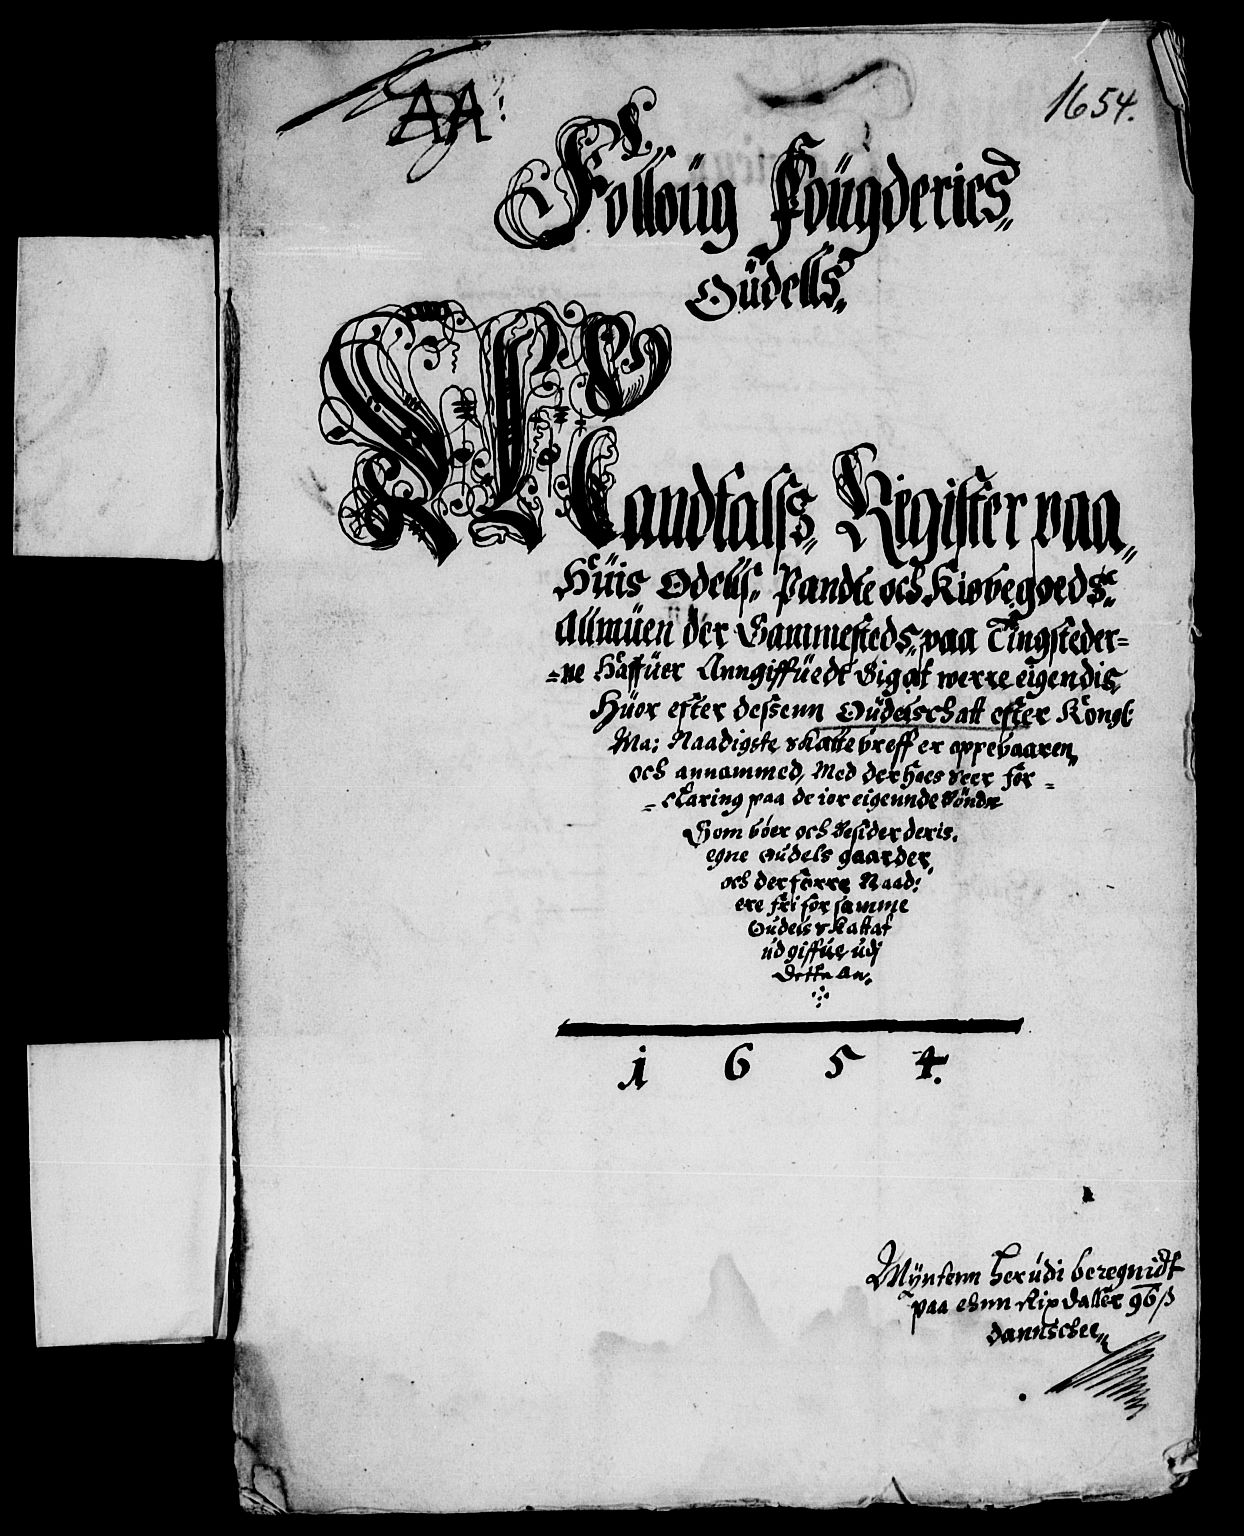 AA:
1654.
Folloüg Foügderies
Oüdells.
Mandtalss Register paa
Hüis Odells. Pandte och Kiøbegoeds
Allmüen der Sammesteds, paa Tingsteder=
=ne Haffüer Anngiffüedt Sigat werre eigendis,
Hüor effter dessenn Oüdelschatt effter Kongl:
Ma: Naadigste skattebreff er oppebaaren,
och annammed, Med der Hoes Veer for=
=claring paa de ior eigennde Bönder
Som boer och Besider deris.
egne oudels gaarder,
och der forre Naad:
ere fri for samme
Oudels skattat
udgiffue udj
Dette An.
1654.
Mÿntenn herüdi beregnidt
paa ehnn Rixdaller 96 ß
dannschee